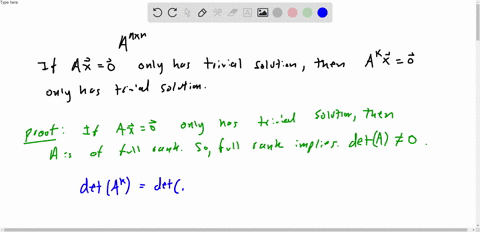 Type here
A^{n×n}
If Ax⃗ = 0⃗ only has trivial solution, then A^k x⃗ = 0⃗
only has trivial solution.
proof: If Ax⃗ = 0⃗ only has trivial solution, then
A is of full rank. So, full rank implies. det(A) ≠ 0.
det(A^k) = det(